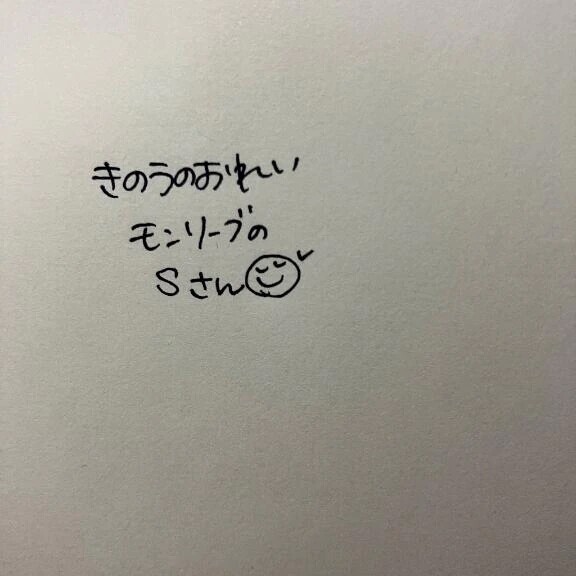 きのうのおれい
モンリーブの
Sさん